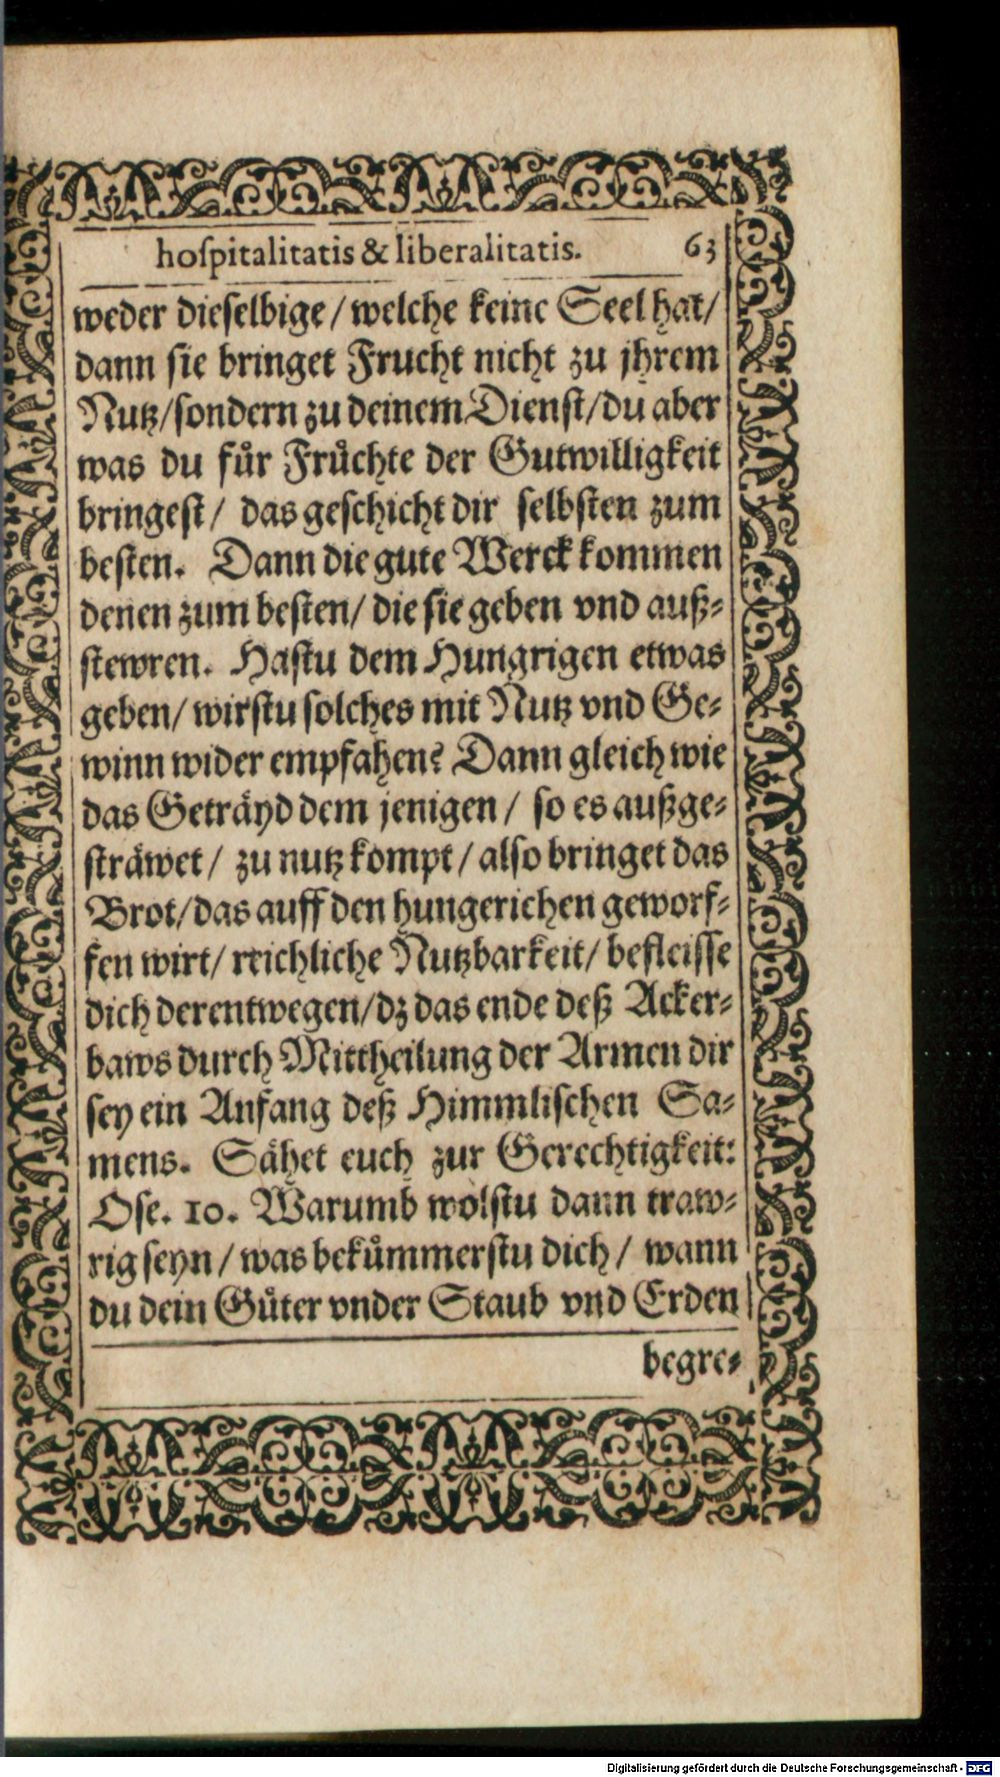 hoſpitalitatis & liberalitatis. 63
weder dieſelbige/ welche keine Seel hat/
dann ſie bringet Frucht nicht zu jhrem
Nutz/ſondern zu deinem Dienſt/du aber
was du fuͤr Fruͤchte der Gutwilligkeit
bringeſt/ das geſchicht dir ſelbſten zum
beſten. Dann die gute Werck kommen
denen zum beſten/ die ſie geben vnd auß⸗
ſtewren. Haſtu dem Hungrigen etwas
geben/ wirſtu ſolches mit Nutz vnd Ge⸗
winn wider empfahen? Dann gleich wie
das Getraͤyd dem jenigen/ ſo es außge⸗
ſtraͤwet/ zu nutz kompt/ alſo bringet das
Brot/das auff den hungerichen geworf⸗
fen wirt/ reichliche Nutzbarkeit/ befleiſſe
dich derentwegen/dz das ende deß Acker⸗
baws durch Mittheilung der Armen dir
ſey ein Anfang deß Himmliſchen Sa⸗
mens. Saͤhet euch zur Gerechtigkeit:
Oſe. 10. Warumb woͤlſtu dann traw⸗
rig ſeyn/ was bekuͤmmerſtu dich/ wann
du dein Guͤter vnder Staub vnd Erden
begre⸗
Digitalisierung gefördert durch die Deutsche Forschungsgemeinschaft - DFG